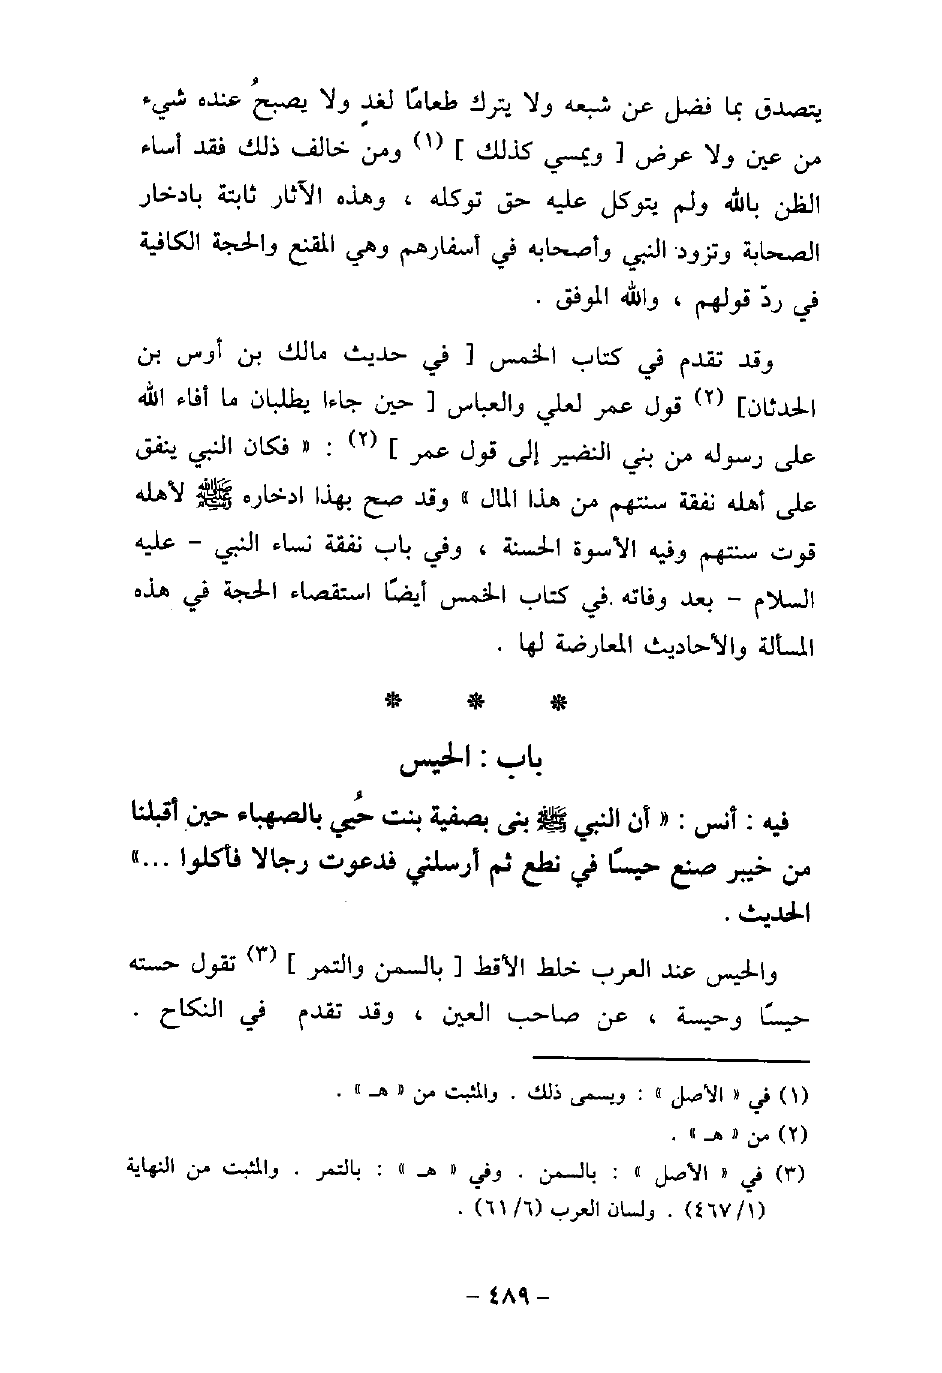 يتصدق بما فضل عن شبعه ولا يترك طعامًا لغدٍ ولا يصبحُ عنده شيء
من عين ولا عرض [ ويمسي كذلك ] (١) ومن خالف ذلك فقد أساء
الظن بالله ولم يتوكل عليه حق توكله ، وهذه الآثار ثابتة بادخار
الصحابة وتزود النبي وأصحابه في أسفارهم وهي المقنع والحجة الكافية
في ردّ قولهم ، والله الموفق .
وقد تقدم في كتاب الخمس [ في حديث مالك بن أوس بن
الحدثان] (٢) قول عمر لعلي والعباس [ حين جاءا يطلبان ما أفاء الله
على رسوله من بني النضير إلى قول عمر ] (٢) : « فكان النبي ينفق
على أهله نفقة سنتهم من هذا المال » وقد صح بهذا ادخاره ﷺ لأهله
قوت سنتهم وفيه الأسوة الحسنة ، وفي باب نفقة نساء النبي – عليه
السلام – بعد وفاته في كتاب الخمس أيضًا استقصاء الحجة في هذه
المسألة والأحاديث المعارضة لها .
* * *
باب : الحيس
فيه : أنس : « أن النبي ﷺ بنى بصفية بنت حُيي بالصهباء حين أقبلنا
من خيبر صنع حيسًا في نطع ثم أرسلني فدعوت رجالا فأكلوا ...»
الحديث .
والحيس عند العرب خلط الأقط [ بالسمن والتمر ] (٣) تقول حسته
حيسًا وحيسة ، عن صاحب العين ، وقد تقدم في النكاح .
(١) في « الأصل » : ويسمى ذلك . والمثبت من « هـ » .
(٢) من « هـ » .
(٣) في « الأصل » : بالسمن . وفي « هـ » : بالتمر . والمثبت من النهاية
(٤٦٧/١) . ولسان العرب (٦١/٦) .
– ٤٨٩ –